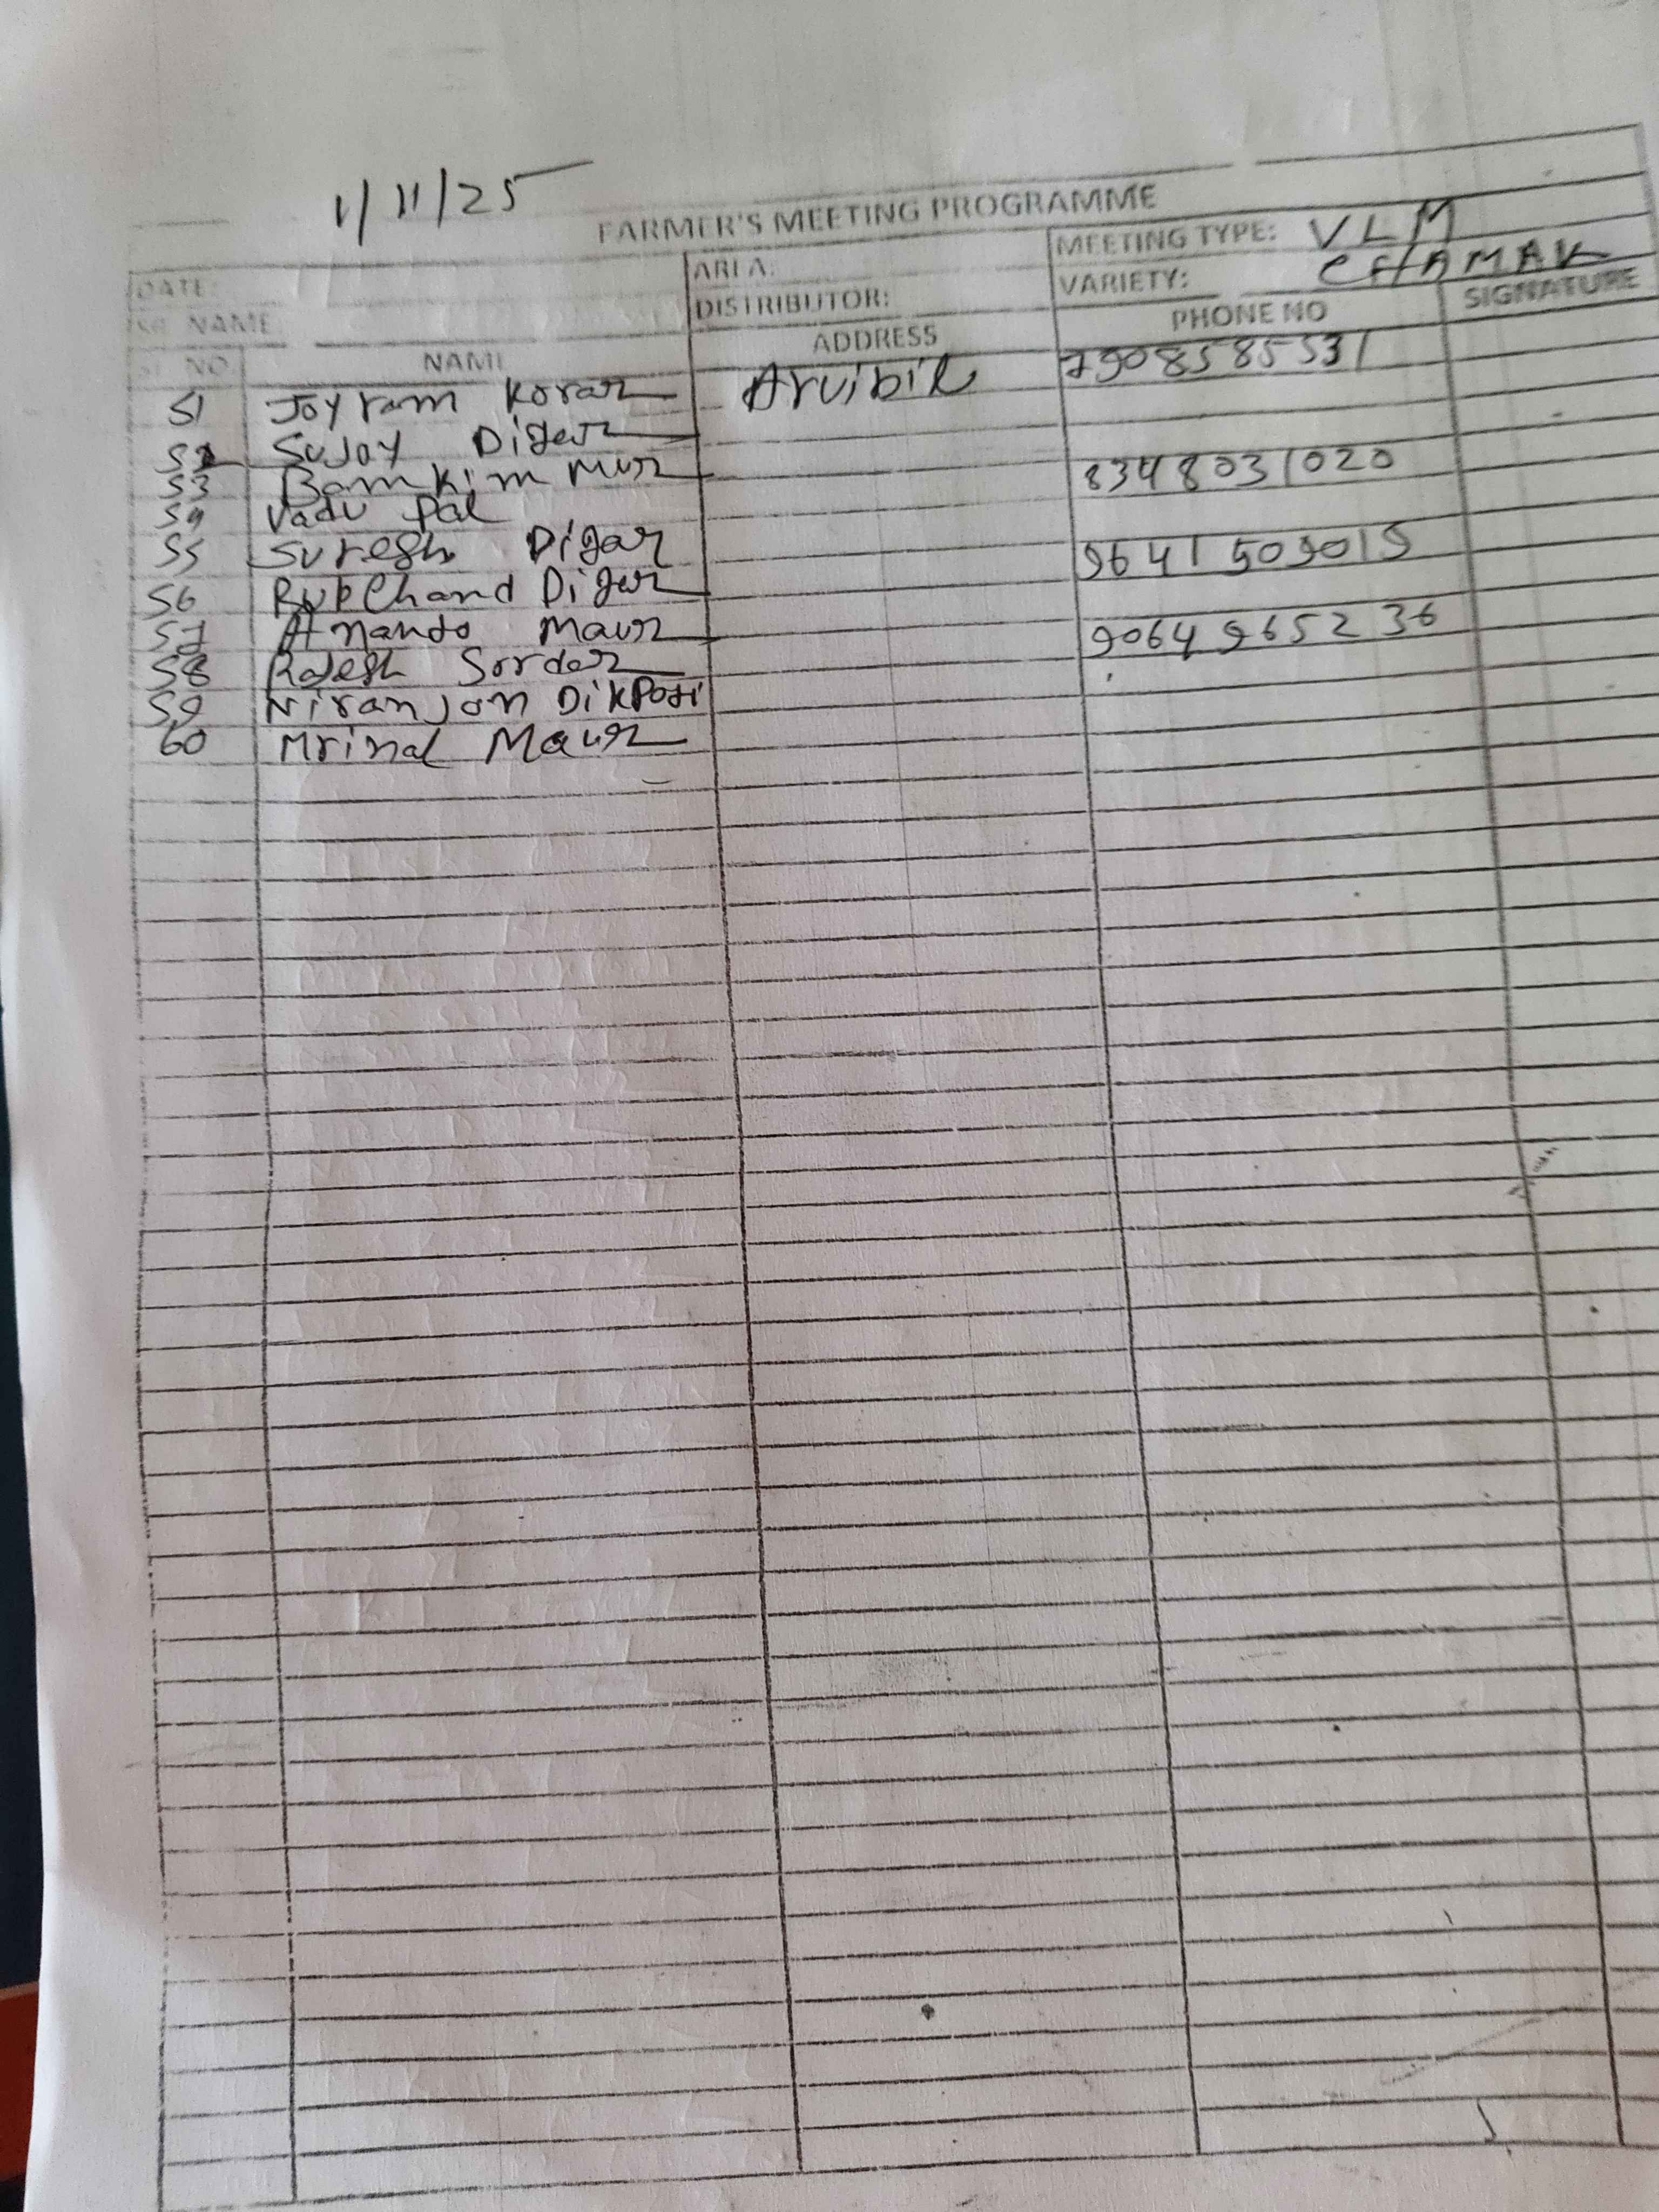 1/11/25
FARMER'S MEETING PROGRAMME
DATE: AREA: MEETING TYPE: VLM
SR. NAME DISTRIBUTOR: VARIETY: CHAMAK
SL NO. NAME ADDRESS PHONE NO SIGNATURE
51 Joyram Korar Arvibil 7908585531
52 Sujoy Digar
53 Bamkim 8348031020
54 Vadu Pal
55 Suresh Digar 9641509019
56 Rupchand Digar
57 Ananda Maur 9064965236
58 Rajesh Sordar
59 Niranjan Dikpati
60 Mrinal Maur